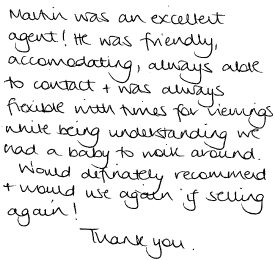 Martin was an excellent
agent! He was friendly,
accomodating, always able
to contact + was always
flexible with times for viewings
while being understanding we
had a baby to work around.
Would definately recommend
+ would use again if selling
again!
Thank you.